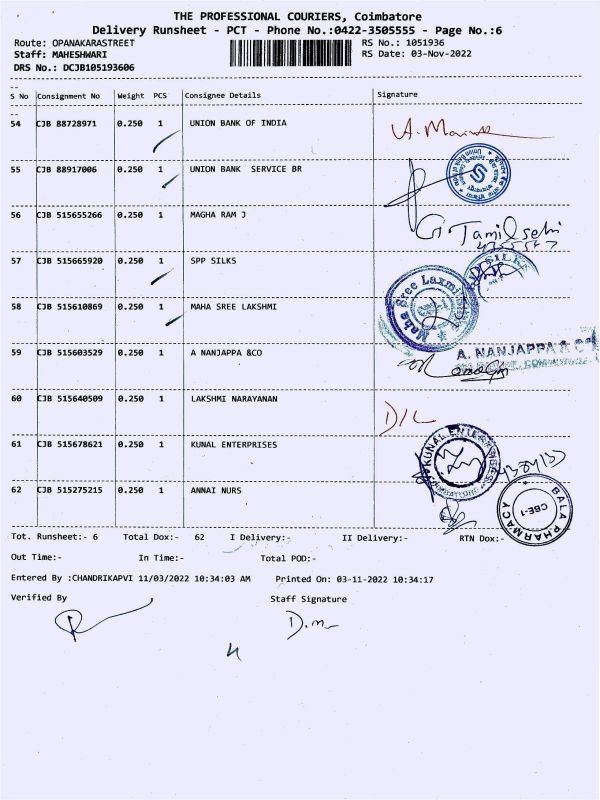 THE PROFESSIONAL COURIERS, Coimbatore
Delivery Runsheet - PCT - Phone No.:0422-3505555 - Page No.:6
Route: OPANAKARASTREET RS No.: 1051936
Staff: MAHESHWARI RS Date: 03-Nov-2022
DRS No.: DCJB105193606
S No Consignment No Weight PCS Consignee Details Signature
54 CJB 88728971 0.250 1 UNION BANK OF INDIA
55 CJB 88917006 0.250 1 UNION BANK SERVICE BR
56 CJB 515655266 0.250 1 MAGHA RAM J
G. Tamilselvi
57 CJB 515665920 0.250 1 SPP SILKS
58 CJB 515610869 0.250 1 MAHA SREE LAKSHMI
Maha Sree Laxmi
59 CJB 515603529 0.250 1 A NANJAPPA &CO
A. NANJAPPA & CO
60 CJB 515640509 0.250 1 LAKSHMI NARAYANAN
D/L
61 CJB 515678621 0.250 1 KUNAL ENTERPRISES
KUNAL ENTERPRISES
COIMBATORE
62 CJB 515275215 0.250 1 ANNAI NURS
BALA PHARMACY
CBE-1
Tot. Runsheet:- 6 Total Dox:- 62 I Delivery:- II Delivery:- RTN Dox:-
Out Time:- In Time:- Total POD:-
Entered By :CHANDRIKAPVI 11/03/2022 10:34:03 AM Printed On: 03-11-2022 10:34:17
Verified By Staff Signature